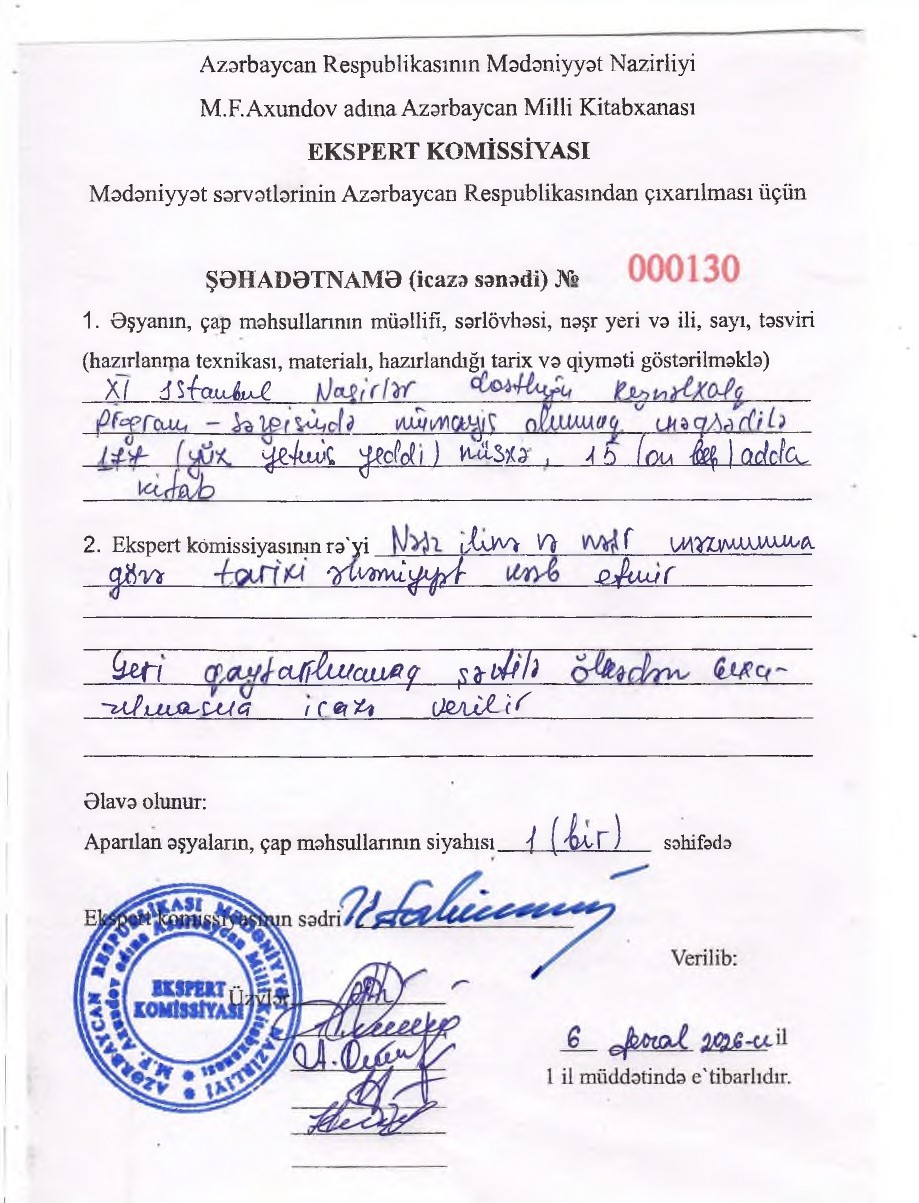 Azərbaycan Respublikasının Mədəniyyət Nazirliyi
M.F.Axundov adına Azərbaycan Milli Kitabxanası
EKSPERT KOMİSSİYASI
Mədəniyyət sərvətlərinin Azərbaycan Respublikasından çıxarılması üçün
ŞƏHADƏTNAMƏ (icazə sənədi) № 000130
1. Əşyanın, çap məhsullarının müəllifi, sərlövhəsi, nəşr yeri və ili, sayı, təsviri
(hazırlanma texnikası, materialı, hazırlandığı tarix və qiyməti göstərilməklə)
XI İstanbul Naşirlər dostluğu Beynəlxalq
program - sərgisində nümayiş olunmaq məqsədilə
177 (yüz yetmiş yeddi) nüsxə, 15 (on beş) adda
kitab
2. Ekspert komissiyasının rə`yi Nəşr ilinə və nəşr məzmununa
görə tarixi əhəmiyyət kəsb etmir
Geri qaytarılmamaq şərtilə ölkədən çıxa-
rılmasına icazə verilir
Əlavə olunur:
Aparılan əşyaların, çap məhsullarının siyahısı 1 (bir) səhifədə
Ekspert komissiyasının sədri
Verilib:
Üzvlər
6 fevral 2026-cı il
1 il müddətində e`tibarlıdır.
AZƏRBAYCAN RESPUBLİKASI MƏDƏNİYYƏT NAZİRLİYİ
M.F. Axundov adına Azərbaycan Milli Kitabxanası
EKSPERT
KOMİSSİYASI